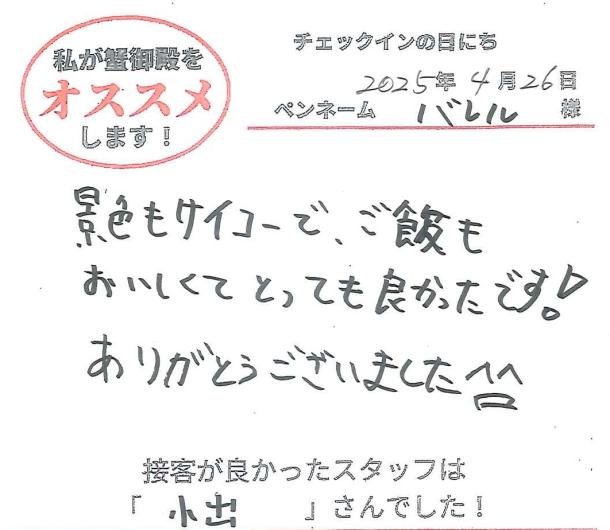 私が蟹御殿を
オススメ
します！
チェックインの日にち
2025年4月26日
ペンネーム バレル 様
景色もサイコーで、ご飯も
おいしくてとっても良かったです!
ありがとうございました^^
接客が良かったスタッフは
「小出」さんでした！